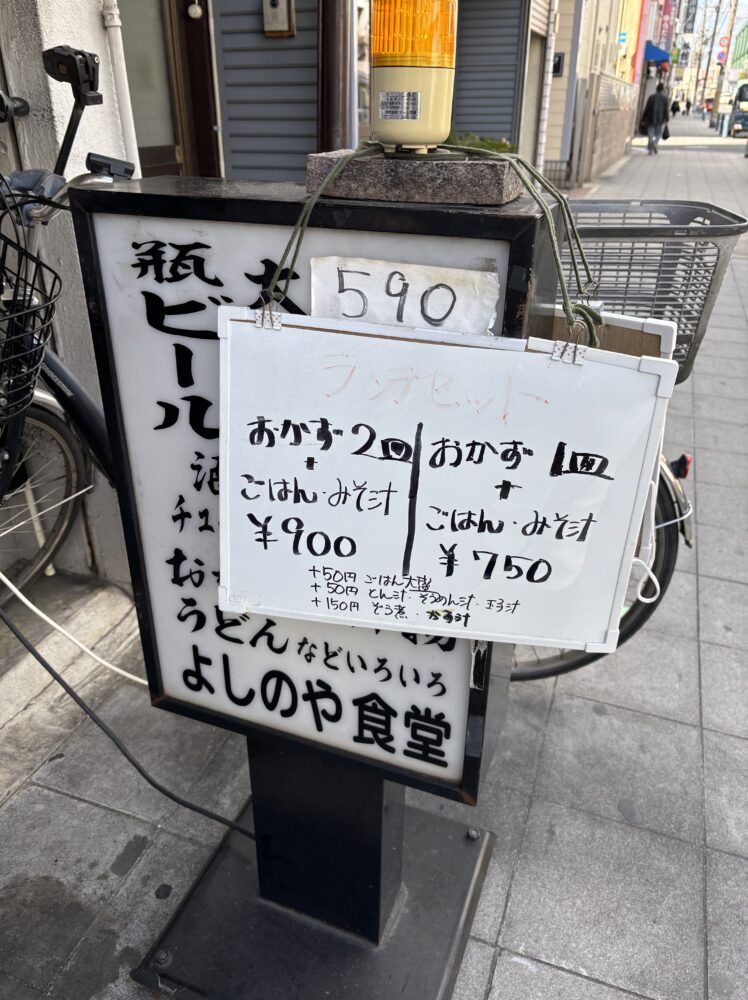 瓶ビール
大
590
ランチセット
おかず2皿
+
ごはん・みそ汁
¥900
おかず 1皿
+
ごはん・みそ汁
¥750
+50円 ごはん大盛
+50円 とん汁・そうめん汁・玉子汁
+150円 ぞう煮・かす汁
酒
チュ
お
うどんなどいろいろ
よしのや食堂